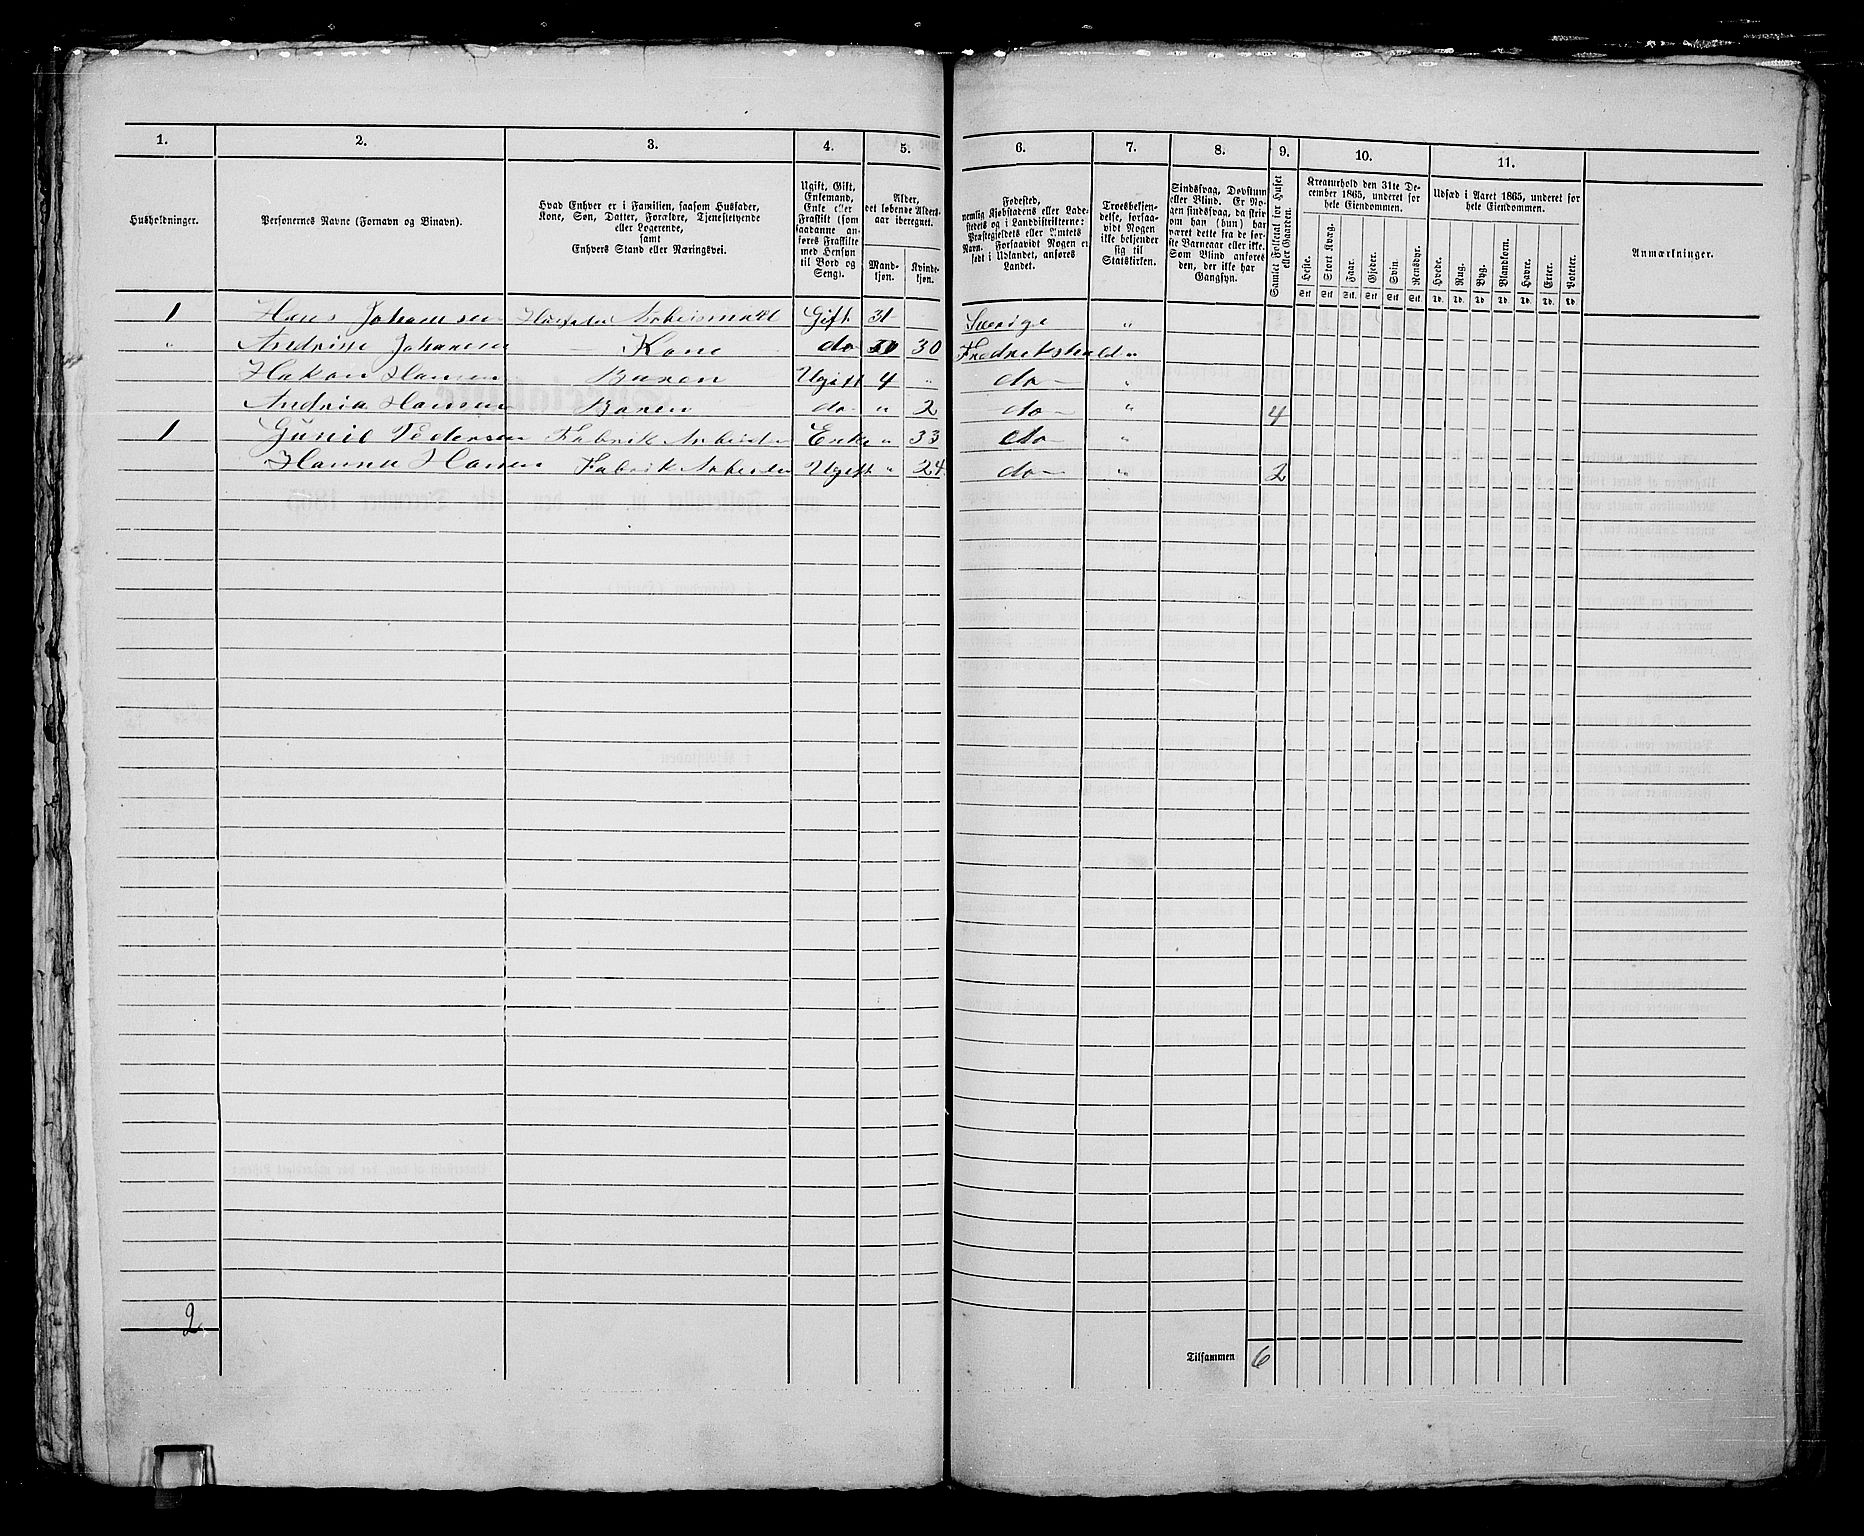 1. 2. 3. 4. 5. 6. 7. 8. 9. 10. 11.
Husholdninger.
Personernes Navne (Fornavn og Binavn).
Hvad Enhver er i Familien, saasom Husfader,
Kone, Søn, Datter, Forældre, Tjenestetyende
eller Logerende,
samt
Enhvers Stand eller Næringsvei.
Ugift, Gift,
Enkemand,
Enke eller
Fraskilt (som
saadanne an-
føres Fraskilte
med Hensyn
til Bord og
Seng).
Alder,
det løbende Alders-
aar iberegnet.
Mand-
kjøn.
Kvinde-
kjøn.
Fødested,
nemlig Kjøbstadens eller Lade-
stedets og i Landdistrikterne:
Præstegjeldets eller Amtets
Navn. Forsaavidt Nogen er
født i Udlandet, anføres
Landet.
Troesbekjen-
delse, forsaa-
vidt Nogen
ikke bekjender
sig til
Statskirken.
Sindssvag, Døvstum
eller Blind. Er No-
gen sindssvag, da skri-
ves om han (hun) har
været dette fra de før-
ste Barneaar eller ikke.
Som Blind anføres
den, der ikke har
Gangsyn.
Samlet Folketal for Huset
eller Gaarden.
Kreaturhold den 31te De-
cember 1865, underet for
hele Eiendommen.
Heste. Stort Kvæg. Faar. Gjeder. Svin. Rensdyr.
Stk. Stk. Stk. Stk. Stk. Stk.
Udsæd i Aaret 1865, underet for
hele Eiendommen.
Hvede. Rug. Byg. Blandkorn. Havre. Erter. Poteter.
Td. Td. Td. Td. Td. Td. Td.
Anmærkninger.
1 Hans Johannsen Husfader Arbeismand Gift 31 Sverige "
" Andrine Johansen Kone do 30 Fredrikshald "
Hakon Hansen Baren Ugift 4 " do "
Andria Hansen Baren do " 2 do " 4
1 Gunil Pedersen Fabrik Arbeider Enke " 33 do "
Hanna Hansen Fabrik Arbeider Ugift " 24 do " 2
2
Tilsammen 6